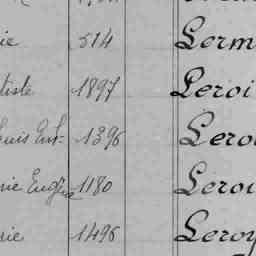 ie 514 Lerm
tiste 1897 Leroi
ouis Eug- 1396 Lero
rie Eugne 1180 Lerou
rie 1496 Leroy